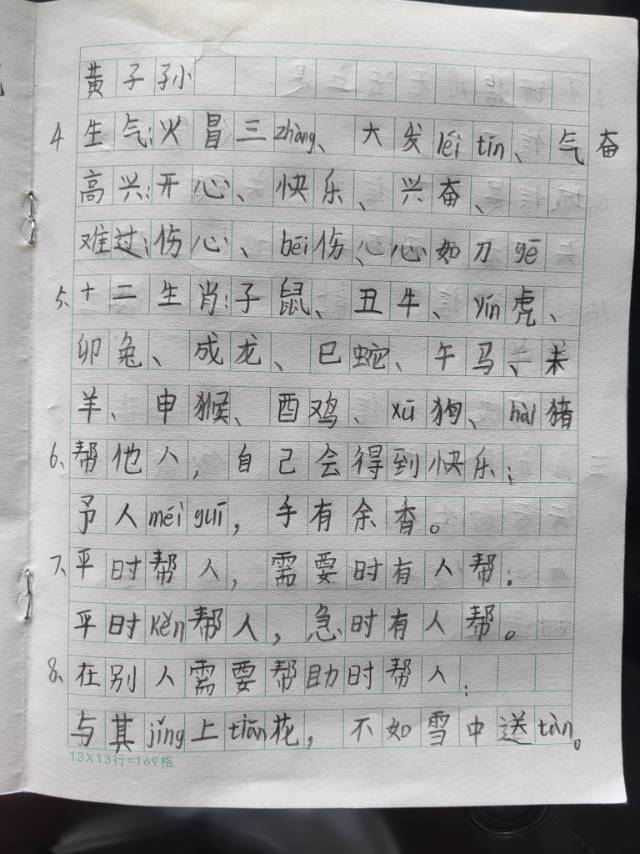 黄子孙
4 生气:火冒三zhàng、大发léi tín、气奋
高兴:开心、快乐、兴奋、
难过:伤心、bēi伤、心如刀gē
5、十二生肖:子鼠、丑牛、yín虎、
卯兔、成龙、巳蛇、午马、未
羊、申猴、酉鸡、xū狗、hài猪
6、帮他人,自己会得到快乐;
予人méi guī,手有余香。
7、平时帮人,需要时有人帮:
平时Kěn帮人,急时有人帮。
8、在别人需要帮助时帮人:
与其jǐng上tiān花,不如雪中送tàn。
13X13行=169格